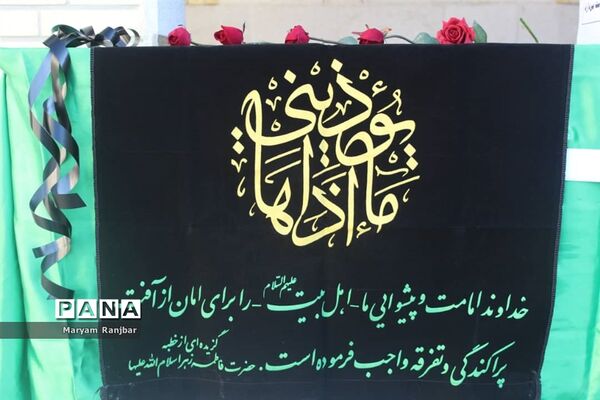 یؤذینی
ما آذاها
خداوند امامت و پیشوایی ما - اهل بیت علیهم السلام - را برای امان از آفت
پراکندگی و تفرقه واجب فرموده است.
گزیده‌ای از خطبه
حضرت فاطمه زهرا سلام الله علیها
PANA
Maryam Ranjbar